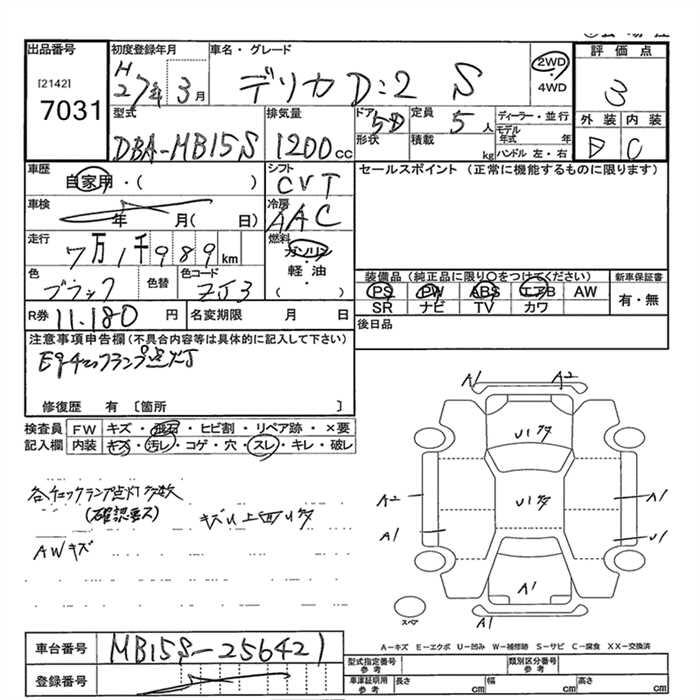 出品番号
[2142]
7031
初度登録年月
H27年 3月
車名・グレード
デリカ D:2 S
2WD
4WD
評価点
3
外装 内装
D C
型式
DBA-MB15S
排気量
1200cc
ドア 5D
形状
定員 5人
積載 kg
ディーラー・並行
モデル年式 年
ハンドル 左・右
車歴
自家用・( )
シフト
CVT
セールスポイント (正常に機能するものに限ります)
車検
年 月( 日)
冷房
AAC
走行
7万1千989km
燃料
ガソリン
軽油
( )
色
ブラック
色替
色コード
ZJ3
装備品 (純正品に限り○をつけてください)
PS PW ABS エアB AW
SR ナビ TV カワ
新車保証書
有・無
R券 11.180円
名変期限 月 日
後日品
注意事項申告欄 (不具合内容等は具体的に記入して下さい)
Egチェックランプ点灯
修復歴 有 〔箇所 〕
検査員記入欄
FW キズ・飛石・ヒビ割・リペア跡・×要
内装 キズ・汚レ・コゲ・穴・スレ・キレ・破レ
各チェックランプ点灯多数
(確認要ス)
キズU上面U多
AWキズ
A1 A2
U1多
A2 U1多 A1
A1 U1
A1
スペア
A1
A-キズ E-エクボ U-凹み W-補修跡 S-サビ C-腐食 XX-交換済
車台番号 MB15S-256421
登録番号
型式指定番号 参考
類別区分番号 参考
車庫証明用 参考
長さ cm
幅 cm
高さ cm